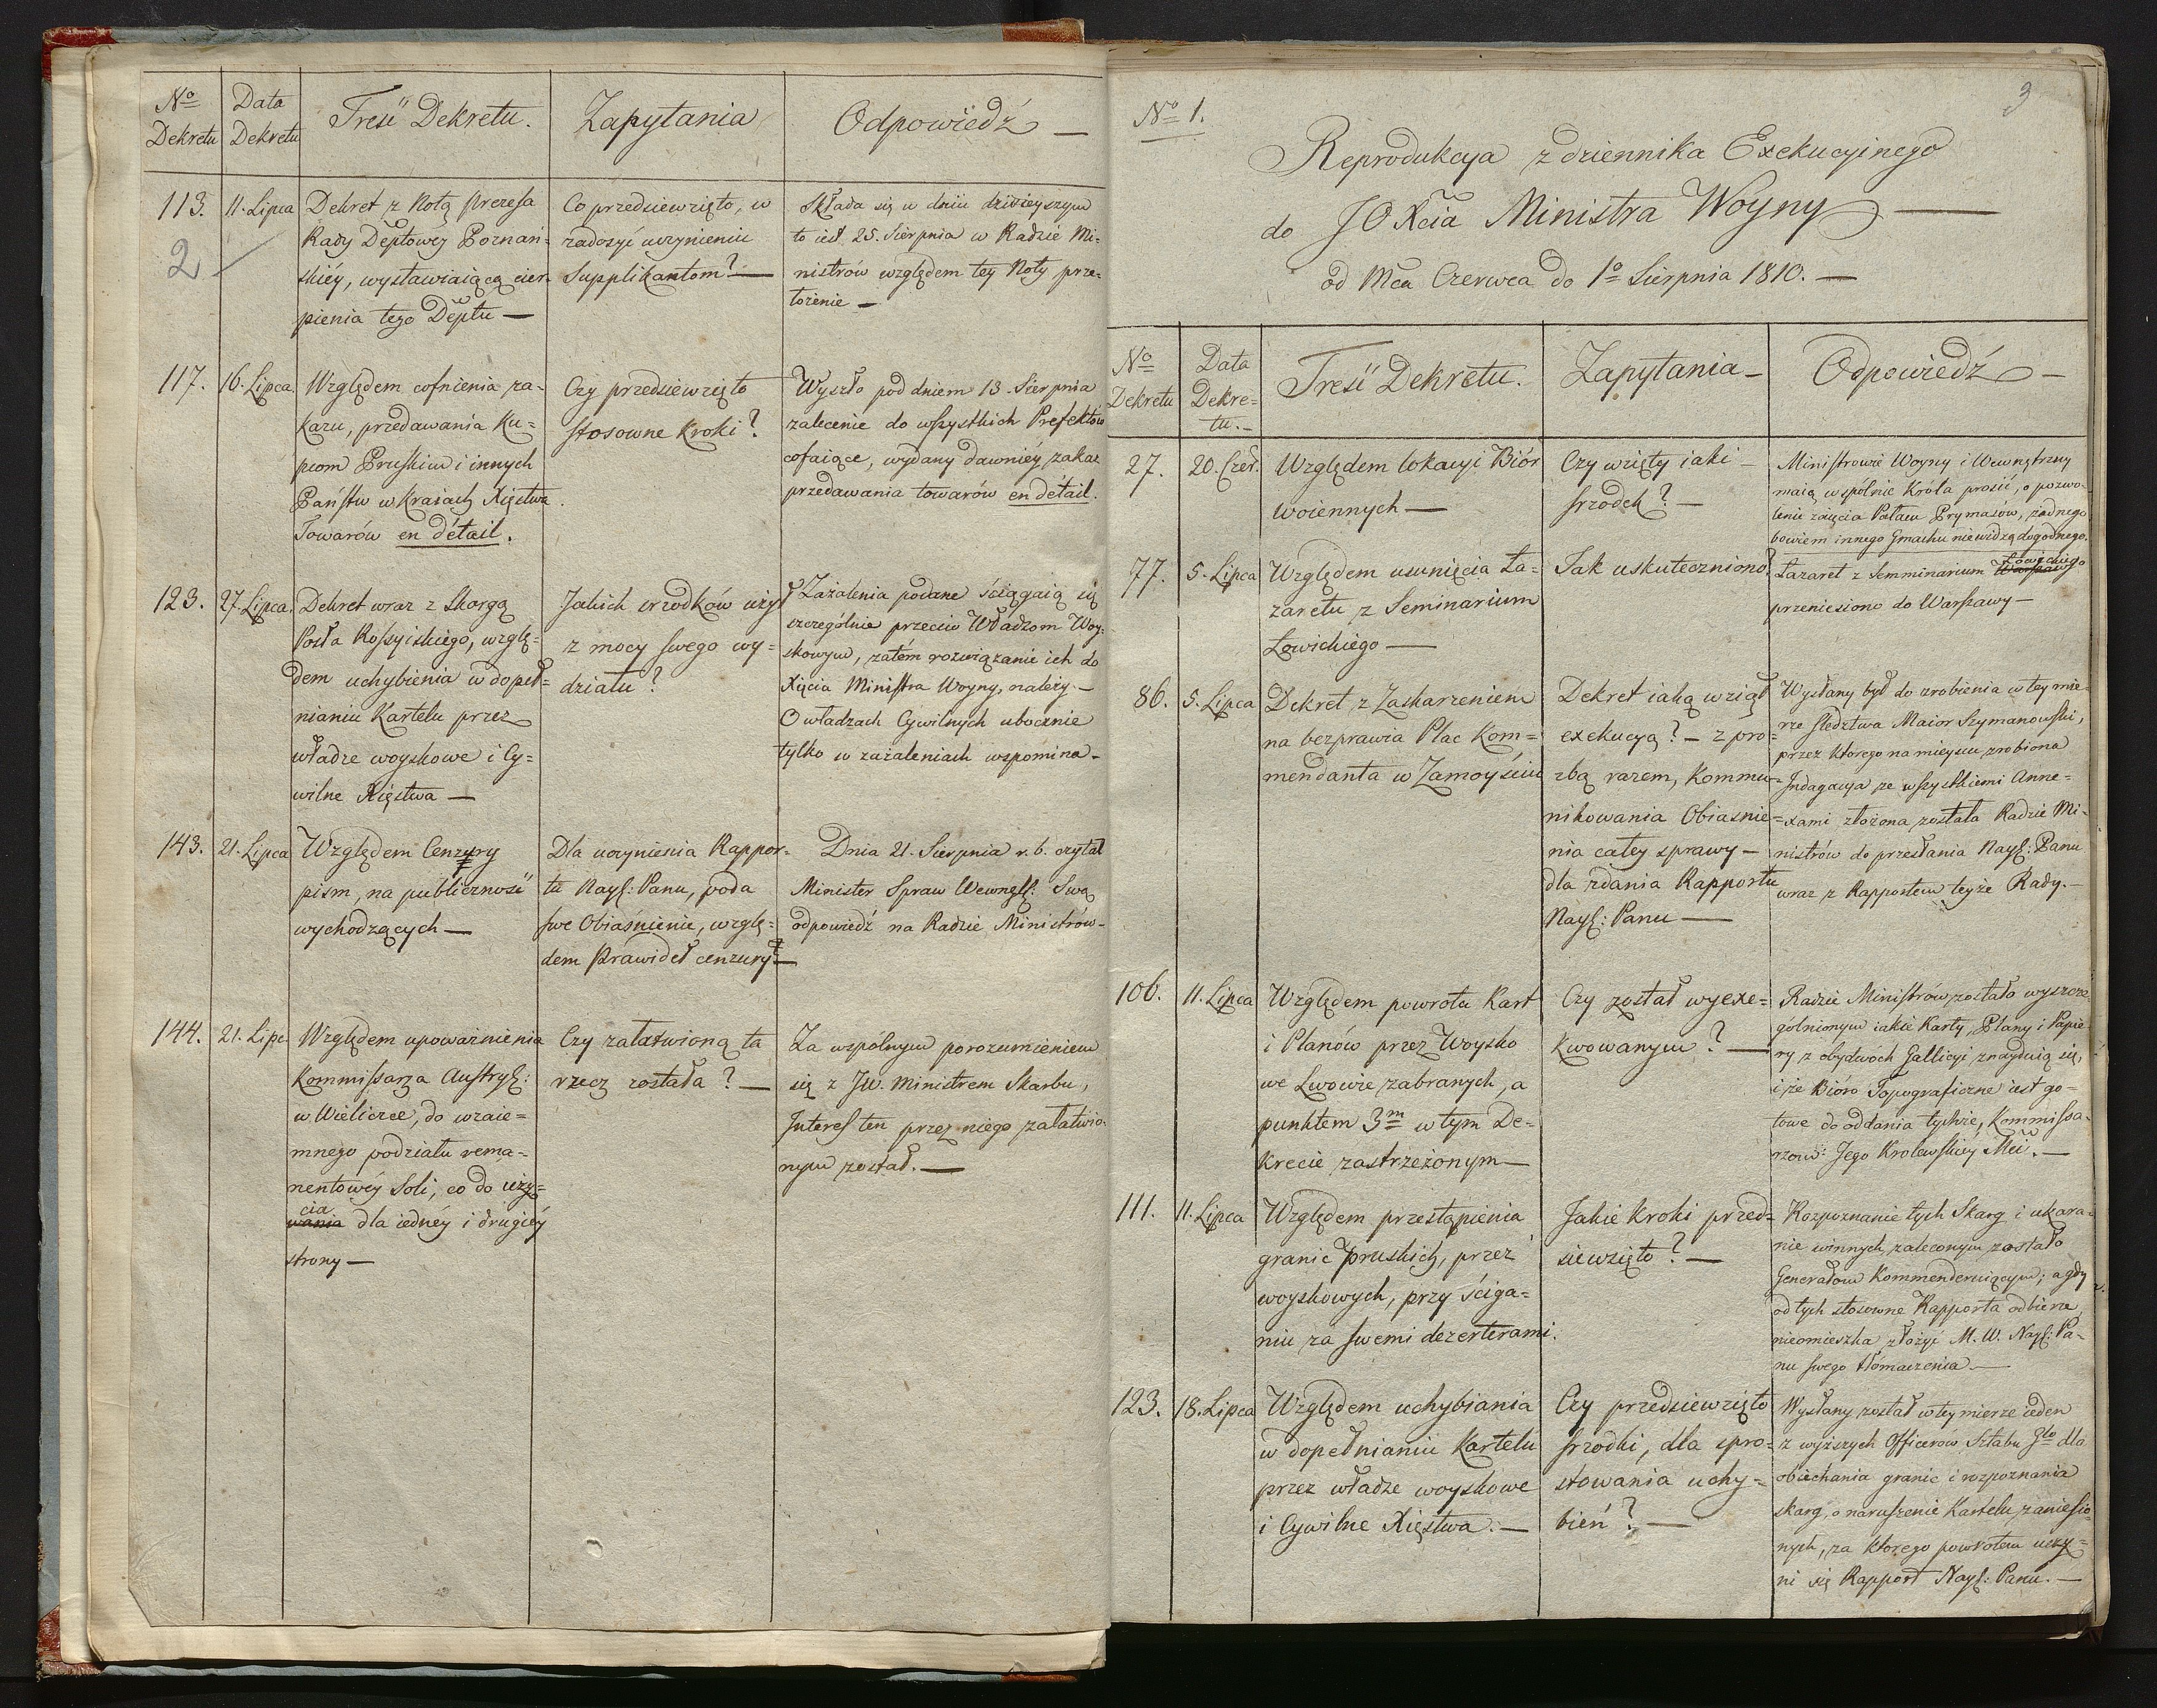 No Dekretu
Data Dekretu
Treść Dekretu.
Zapytania
Odpowiedź —
2
113.
11. Lipca
Dekret z Notą Prezesa
Rady Deptowéy Poznań-
skiéy, wystawiaiącą cier-
pienia tego Deptu —
Co przedsiewzięto, w
zadosyć uczynieniu
Supplikantom? —
Składa się w dniu dzisieyszym
to iest 25. Sierpnia w Radzie Mi-
nistrów względem tey Noty prze-
łożenie —
117.
16. Lipca
Względem cofnienia za-
kazu, przedawania Ku=
pcom Pruskim i innych
Państw w Kraiach Xięstwa
Towarów en détail.
Czy przedsiewzięto
stosowne kroki?
Wyszło pod dniem 13. Sierpnia
zalecenie do wszystkich Prefektów
cofaiące, wydany dawniéy zakaz
przedawania towarów en détail.
123.
27. Lipca.
Dekret wraz z Skargą
Posła Rossyiskiego, wzglę=
dem uchybienia w dopeł=
nianiu Kartelu przez
władze woyskowe i Cy=
wilne Xięstwa —
Jakich srzodków użył
z mocy swego wy=
działu?
Zażalenia podane ściągaią się
szczególnie przeciw Władzom Woy-
skowym, zatém rozwiązanie ich do
Xięcia Ministra Woyny, należy. —
O władzach Cywilnych ubocznie
tylko w zażaleniach wspomina. —
143.
21. Lipca
Względem Cenzury
pism, na publiczność
wychodzących —
Dla uczynienia Rappor-
tu Nayj: Panu, poda
swe Obiaśnienie, wzglę=
dem Prawideł cenzury? —
Dnia 21. Sierpnia r. b. czytał
Minister Spraw Wewnętz: Swą
odpowiedź na Radzie Ministrów. —
144.
21. Lipc
Względem upoważnienia
Kommissarza Austryj:
w Wieliczce, do wzaie=
mnego podziału rema-
nentowéy Soli, co do uży=
cia
wania dla iednéy i drugiéy
strony —
Czy załatwioną ta
rzecz została? —
Za wspólnym porozumieniem
się z JW. Ministrem Skarbu,
Interes ten przez niego załatwio-
nym został. —
3
No 1.
Reprodukcya z dziennika Exekucyinego
do JO Xcia Ministra Woyny —
od Mca Czerwca do 1o Sierpnia 1810. —
No Dekretu
Data Dekre=
tu. —
Treść Dekretu.
Zapytania —
Odpowiedź —
27.
20. Czer.
Względem lokacyi Biór
woiennych —
Czy wzięty iaki —
srzodek? —
Ministrowie Woyny i Wewnętrzny
maią wspólnie Króla prosić, o pozwo-
lenie zaięcia Pałacu Prymasów, żadnego
bowiem innego Gmachu nie widzą dogodnego.
77.
5. Lipca
Względem usunięcia La-
zaretu z Seminarium
Łowickiego —
Jak uskuteczniono?
Lazaret z Semminarium Łowickiego
przeniesiono do Warszawy —
86.
5. Lipca
Dekret z Zaskarżeniem
na bezprawia Plac Kom=
mendanta w Zamościu
Dekret iaką wziął
exekucyą? — z pro=
zbą razem, Kommu=
nikowania Obiaśnie=
nia całey sprawy —
dla zdania Rapportu
Nayj: Panu —
Wysłany był do zrobienia w tey mie-
rze śledztwa Maior Szymanowski,
przez którego na mieyscu zrobiona
Indagacya ze wszystkiemi Anne=
xami złożona została Radzie Mi-
nistrów do przesłania Nayj: Panu
wraz z Rapportem teyże Rady. —
106.
11. Lipca
Względem powrotu Kart
i Planów przez Woysko
we Lwowie zabranych, a
punktem 3m w tym De-
krecie zastrzeżonym —
Czy został wyexe=
kwowanym? —
Radzie Ministrów zostało wyszcze-
gólnionym iakie Karty, Plany i Papie-
ry z obydwóch Gallicyi znayduią się,
i że Bióro Topograficzne iest go=
towe do oddania tychże, Kommissa-
rzowi Jego Krolewskiéy Mci. —
111.
11. Lipca
Względem przestąpienia
granic pruskich, przez
woyskowych, przy ściga=
niu za swemi dezerterami.
Jakie kroki przed=
siewzięto? —
Rozpoznanie tych Skarg i ukara-
nie winnych, zaleconym zostało
Generałom Kommenderuiącym; a gdy
od tych stosowne Rapporta odbierze,
nieomieszka złożyć M. W. Nayj: Pa-
nu swego tłómaczenia —
123.
18. Lipca
Względem uchybiania
w dopełnianiu Kartelu
przez władze woyskowe
i Cywilne Xięstwa. —
Czy przedsiewzięto
srzodki, dla spro=
stowania uchy=
bień? —
Wysłany został w tey mierze ieden
z wyższych Officerów Sztabu Głó dla
obiechania granic i rozpoznania
skarg, o naruszenie Kartelu zaniesio-
nych, za którego powrotem uczy=
ni się Rapport Nayj: Panu. —